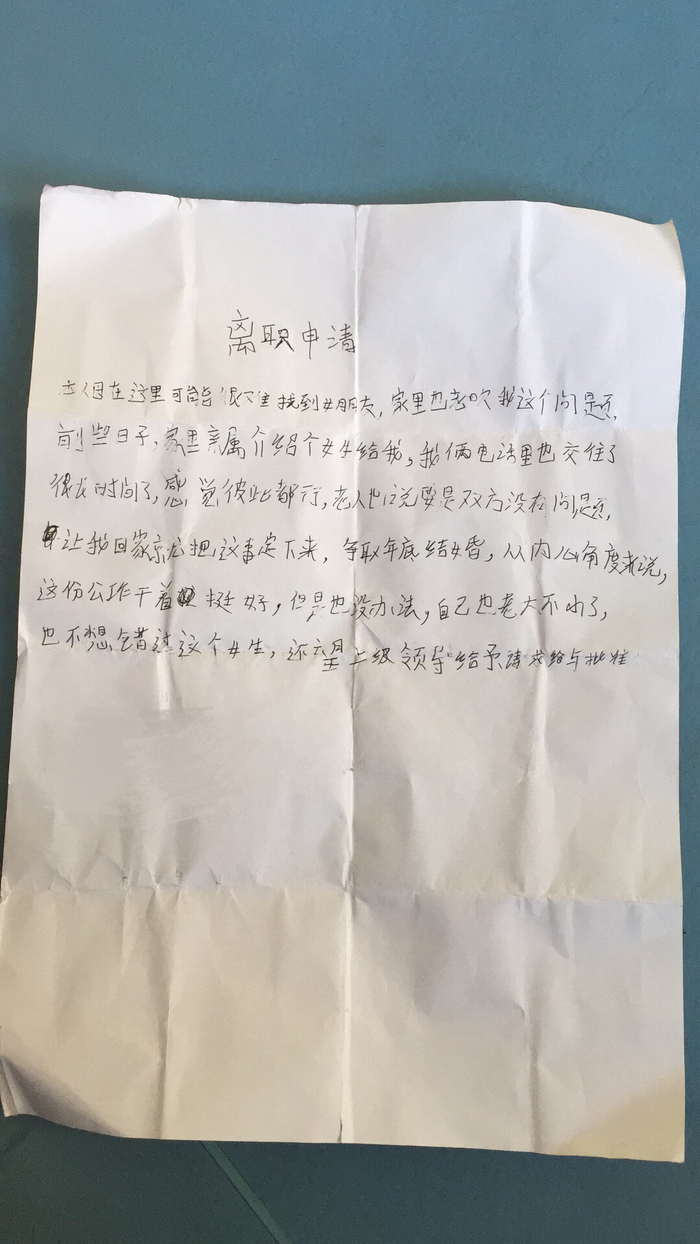 离职申请
在这里可能很难找到女朋友，家里也老吹我这个问题，
前些日子，家里亲属介绍个女生给我，我俩电话里也交往了
很长时间了，感觉彼此都行，老人也说要是双方没有问题，
让我回家就把这事定下来，争取年底结婚，从内心角度来说，
这份公作干着挺好，但是也没办法，自己也老大不小了，
也不想错过这个女生，还望上级领导给予请求给与批准